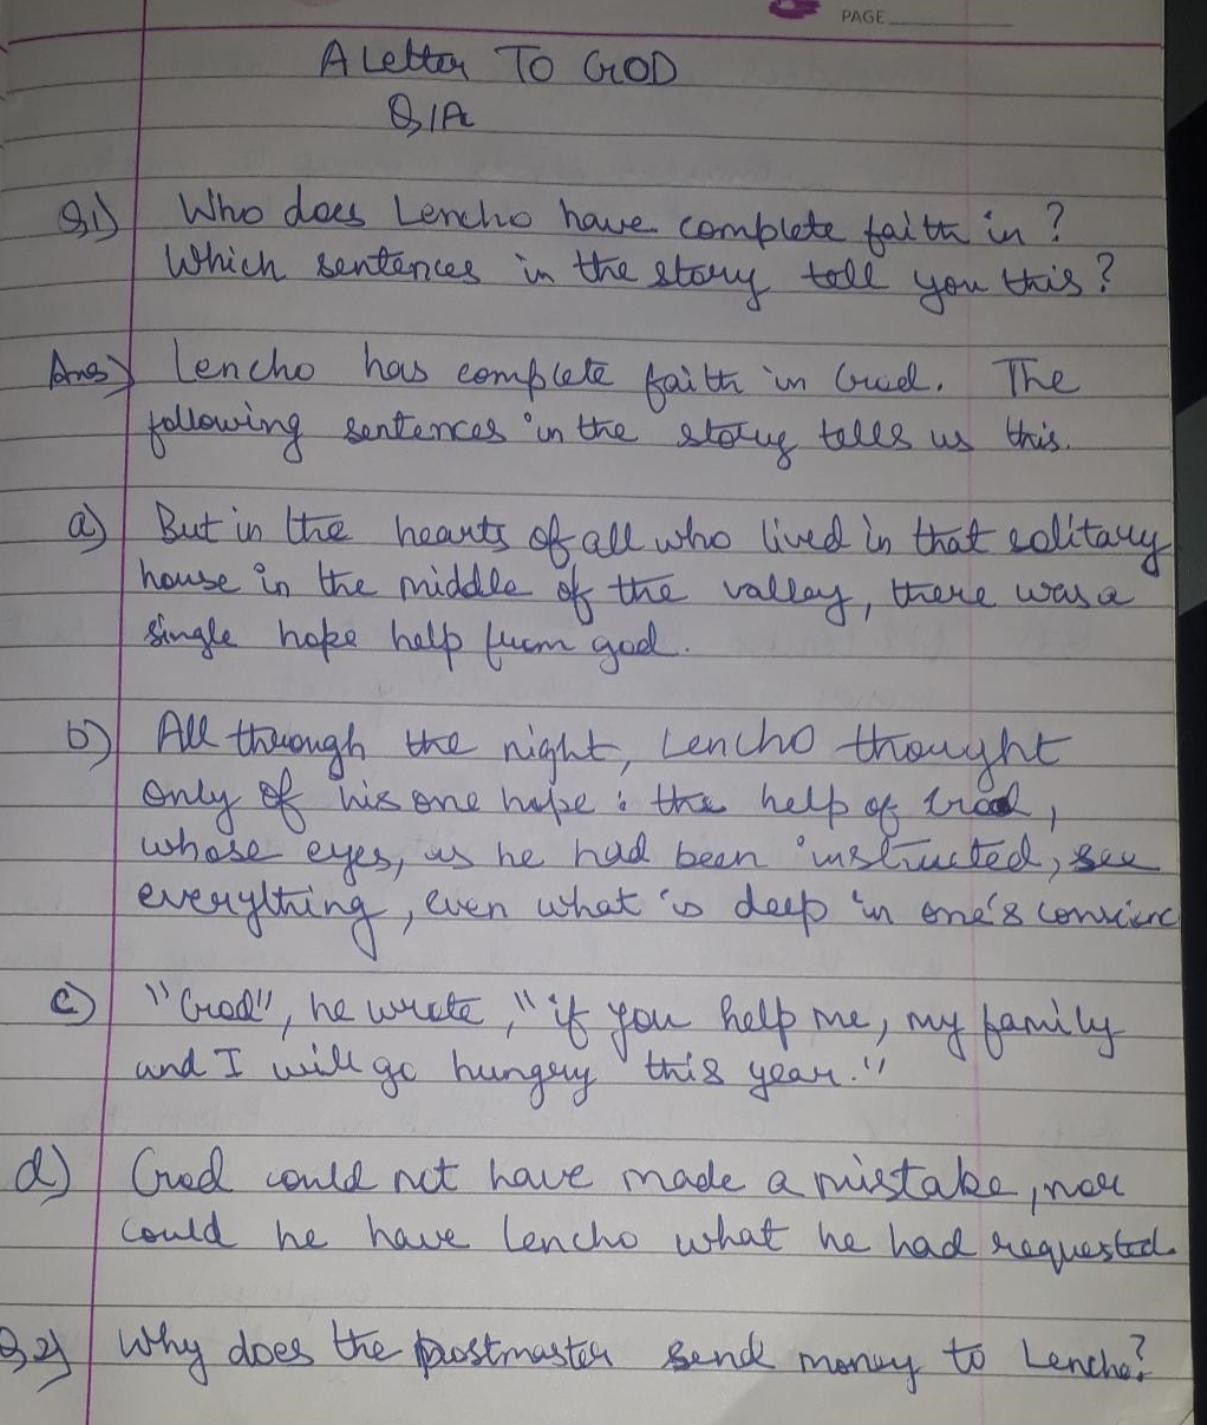 PAGE
A Letter TO GOD
Q/A
Q1) Who does Lencho have complete faith in?
Which sentences in the story tell you this?
Ans) Lencho has complete faith in God. The
following sentences in the story tells us this.
a) But in the hearts of all who lived in that solitary
house in the middle of the valley, there was a
single hope help from god.
b) All through the night, Lencho thought
only of his one hope : the help of God,
whose eyes, as he had been instructed, see
everything, even what is deep in one's conscienc
c) "God", he wrote, "if you help me, my family
and I will go hungry this year."
d) God could not have made a mistake, nor
could he have Lencho what he had requested.
Q2) Why does the postmaster send money to Lencho?